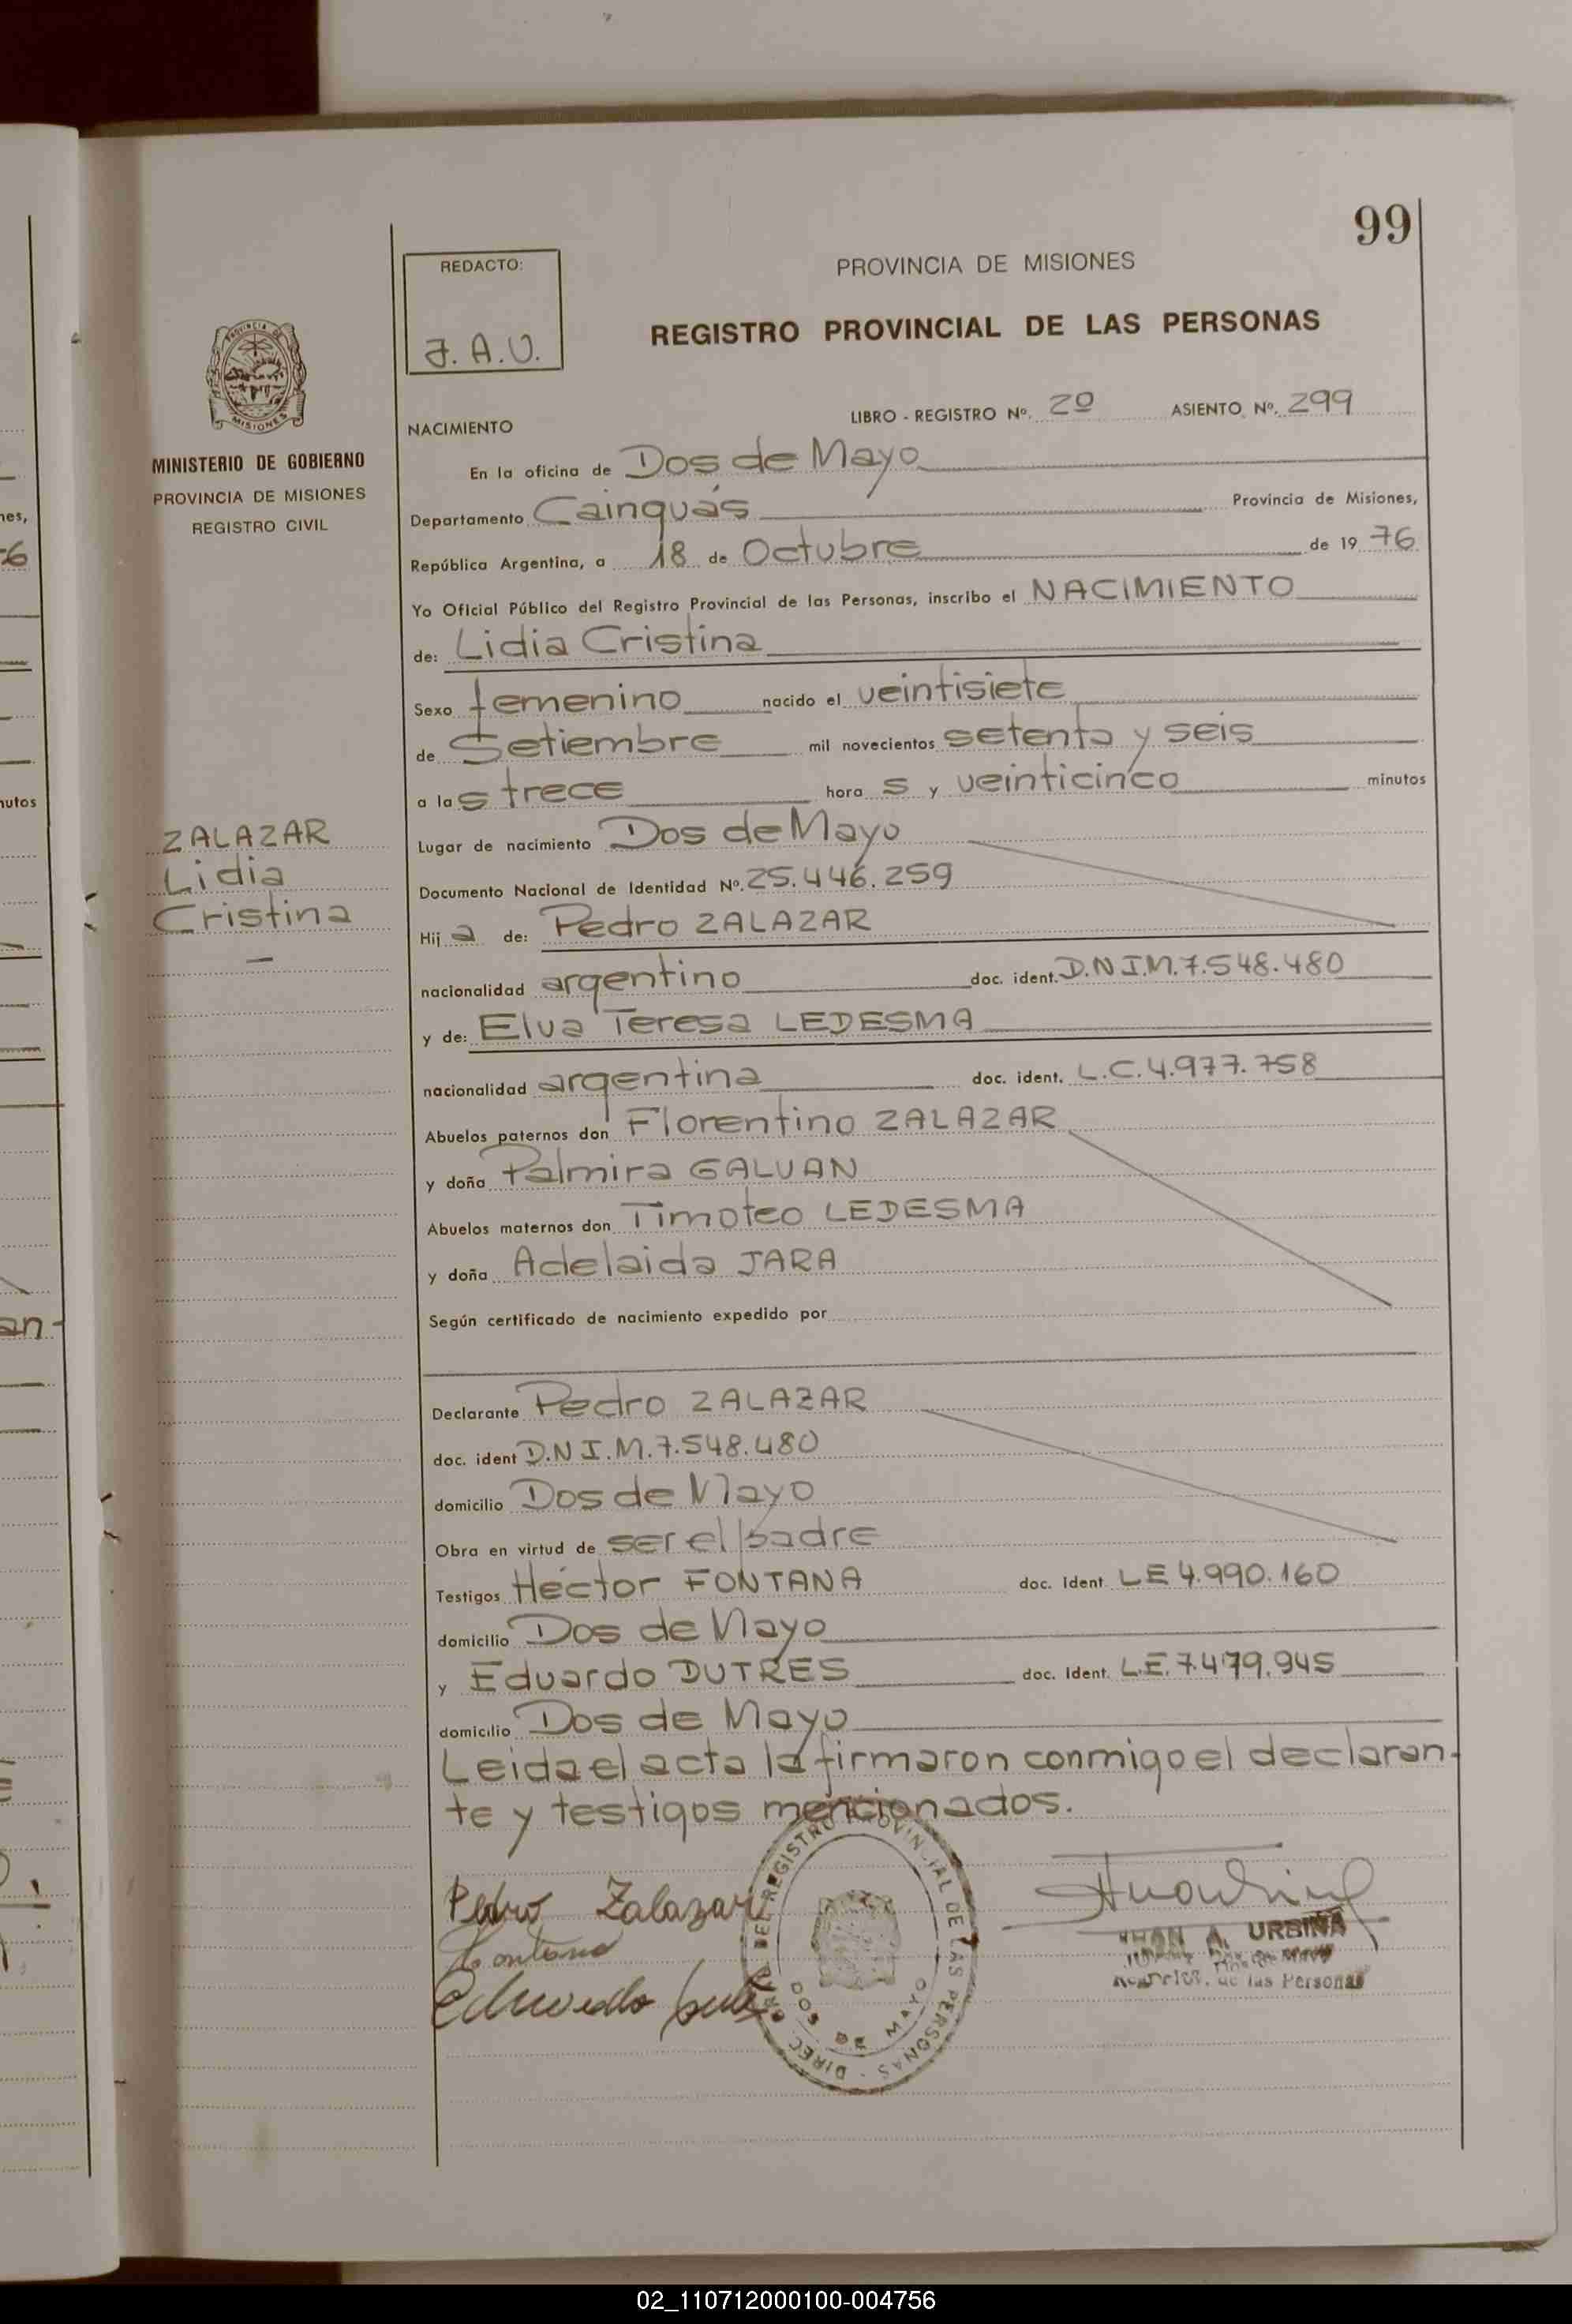 99
REDACTO:
J. A. U.
PROVINCIA DE MISIONES
REGISTRO PROVINCIAL DE LAS PERSONAS
PROVINCIA DE
MISIONES
MINISTERIO DE GOBIERNO
PROVINCIA DE MISIONES
REGISTRO CIVIL
NACIMIENTO LIBRO - REGISTRO Nº. 2º ASIENTO Nº. 299
En la oficina de Dos de Mayo
Departamento Cainguás Provincia de Misiones,
República Argentina, a 18 de Octubre de 19 76
Yo Oficial Público del Registro Provincial de las Personas, inscribo el NACIMIENTO
de: Lidia Cristina
Sexo femenino nacido el veintisiete
de Setiembre mil novecientos setenta y seis
a las trece hora s y veinticinco minutos
ZALAZAR
Lidia
Cristina
Lugar de nacimiento Dos de Mayo
Documento Nacional de Identidad Nº. 25.446.259
Hij a de: Pedro ZALAZAR
nacionalidad argentino doc. ident. D.N.I.M.7.548.480
y de: Elva Teresa LEDESMA
nacionalidad argentina doc. ident. L.C.4.977.758
Abuelos paternos don Florentino ZALAZAR
y doña Palmira GALVAN
Abuelos maternos don Timoteo LEDESMA
y doña Adelaida JARA
Según certificado de nacimiento expedido por
Declarante Pedro ZALAZAR
doc. ident D.N.I.M.7.548.480
domicilio Dos de Mayo
Obra en virtud de ser el padre
Testigos Héctor FONTANA doc. Ident LE 4.990.160
domicilio Dos de Mayo
y Eduardo DUTRES doc. Ident. L.E.7.479.945
domicilio Dos de Mayo
Leida el acta la firmaron conmigo el declaran-
te y testigos mencionados.
Pedro Zalazar
Fontana
Eduardo
DIREC. GRAL. DEL REGISTRO PROVINCIAL DE LAS PERSONAS
DOS DE MAYO
JUAN A. URBINA
de las Personas
nes,
76
nutos
an-
02_110712000100-004756